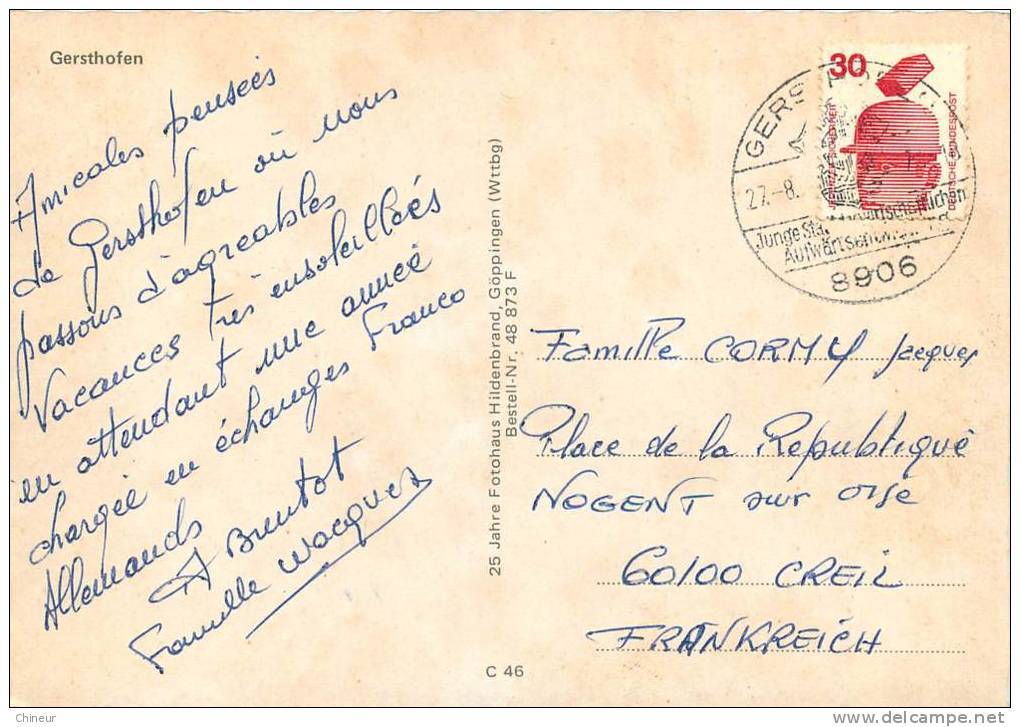 Gersthofen
Amicales pensées
de Gersthofen où nous
passons d'agréables
Vacances très ensoleillées
en attendant une année
chargée en échanges Franco
Allemands
A Bruntot
Famille Wacquez
25 Jahre Fotohaus Hildenbrand, Göppingen (Wttbg)
Bestell-Nr. 48 873 F
C 46
30
DEUTSCHE BUNDESPOST
GERSTHOFEN
27.-8.
Junge Sta
Aufwärtsentw
8906
Famille CORMY Jacques
Place de la Republique
NOGENT sur OISE
60100 CREIL
FRANKREICH
Chineur
delcampe.net